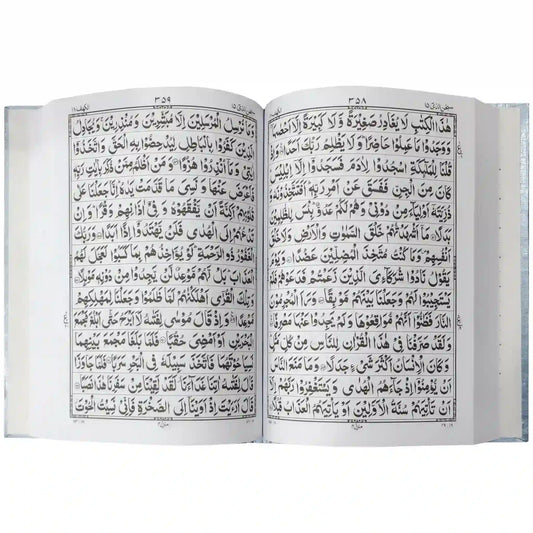 سبحن الذی ١٥
٣٥٨
الكهف ١٨
هٰذَا الْكِتٰبِ لَا يُغَادِرُ صَغِيْرَةً وَّلَا كَبِيْرَةً اِلَّاۤ اَحْصٰىهَا
وَوَجَدُوْا مَا عَمِلُوْا حَاضِرًا وَلَا يَظْلِمُ رَبُّكَ اَحَدًا وَاِذْ
قُلْنَا لِلْمَلٰٓئِكَةِ اسْجُدُوْا لِاٰدَمَ فَسَجَدُوْۤا اِلَّاۤ اِبْلِيْسَ
كَانَ مِنَ الْجِنِّ فَفَسَقَ عَنْ اَمْرِ رَبِّهٖ اَفَتَتَّخِذُوْنَهٗ وَ
ذُرِّيَّتَهٗۤ اَوْلِيَآءَ مِنْ دُوْنِيْ وَهُمْ لَكُمْ عَدُوٌّ بِئْسَ لِلظّٰلِمِيْنَ
بَدَلًا مَاۤ اَشْهَدْتُّهُمْ خَلْقَ السَّمٰوٰتِ وَالْاَرْضِ وَلَا خَلْقَ
اَنْفُسِهِمْ وَمَا كُنْتُ مُتَّخِذَ الْمُضِلِّيْنَ عَضُدًا وَيَوْمَ
يَقُوْلُ نَادُوْا شُرَكَآءِيَ الَّذِيْنَ زَعَمْتُمْ فَدَعَوْهُمْ فَلَمْ
يَسْتَجِيْبُوْا لَهُمْ وَجَعَلْنَا بَيْنَهُمْ مَّوْبِقًا وَرَاَ الْمُجْرِمُوْنَ
النَّارَ فَظَنُّوْۤا اَنَّهُمْ مُّوَاقِعُوْهَا وَلَمْ يَجِدُوْا عَنْهَا مَصْرِفًا
وَلَقَدْ صَرَّفْنَا فِيْ هٰذَا الْقُرْاٰنِ لِلنَّاسِ مِنْ كُلِّ مَثَلٍ
وَكَانَ الْاِنْسَانُ اَكْثَرَ شَيْءٍ جَدَلًا وَمَا مَنَعَ النَّاسَ
اَنْ يُّؤْمِنُوْۤا اِذْ جَآءَهُمُ الْهُدٰى وَيَسْتَغْفِرُوْا رَبَّهُمْ اِلَّاۤ
اَنْ تَاْتِيَهُمْ سُنَّةُ الْاَوَّلِيْنَ اَوْ يَاْتِيَهُمُ الْعَذَابُ قُبُلًا
سبحن الذی ١٥
٣٥٩
الكهف ١٨
وَمَا نُرْسِلُ الْمُرْسَلِيْنَ اِلَّا مُبَشِّرِيْنَ وَمُنْذِرِيْنَ وَيُجَادِلُ
الَّذِيْنَ كَفَرُوْا بِالْبَاطِلِ لِيُدْحِضُوْا بِهِ الْحَقَّ وَاتَّخَذُوْۤا
اٰيٰتِيْ وَمَاۤ اُنْذِرُوْا هُزُوًا وَمَنْ اَظْلَمُ مِمَّنْ ذُكِّرَ بِاٰيٰتِ رَبِّهٖ
فَاَعْرَضَ عَنْهَا وَنَسِيَ مَا قَدَّمَتْ يَدٰهُ اِنَّا جَعَلْنَا عَلٰى
قُلُوْبِهِمْ اَكِنَّةً اَنْ يَّفْقَهُوْهُ وَفِيْۤ اٰذَانِهِمْ وَقْرًا وَاِنْ
تَدْعُهُمْ اِلَى الْهُدٰى فَلَنْ يَّهْتَدُوْۤا اِذًا اَبَدًا وَرَبُّكَ
الْغَفُوْرُ ذُو الرَّحْمَةِ لَوْ يُؤَاخِذُهُمْ بِمَا كَسَبُوْا لَعَجَّلَ لَهُمُ
الْعَذَابَ بَلْ لَّهُمْ مَّوْعِدٌ لَّنْ يَّجِدُوْا مِنْ دُوْنِهٖ مَوْئِلًا
وَتِلْكَ الْقُرٰۤى اَهْلَكْنٰهُمْ لَمَّا ظَلَمُوْا وَجَعَلْنَا لِمَهْلِكِهِمْ
مَّوْعِدًا وَاِذْ قَالَ مُوْسٰى لِفَتٰىهُ لَاۤ اَبْرَحُ حَتّٰۤى اَبْلُغَ مَجْمَعَ
الْبَحْرَيْنِ اَوْ اَمْضِيَ حُقُبًا فَلَمَّا بَلَغَا مَجْمَعَ بَيْنِهِمَا نَسِيَا
حُوْتَهُمَا فَاتَّخَذَ سَبِيْلَهٗ فِي الْبَحْرِ سَرَبًا فَلَمَّا جَاوَزَا
قَالَ لِفَتٰىهُ اٰتِنَا غَدَآءَنَا لَقَدْ لَقِيْنَا مِنْ سَفَرِنَا هٰذَا نَصَبًا
قَالَ اَرَءَيْتَ اِذْ اَوَيْنَاۤ اِلَى الصَّخْرَةِ فَاِنِّيْ نَسِيْتُ الْحُوْتَ